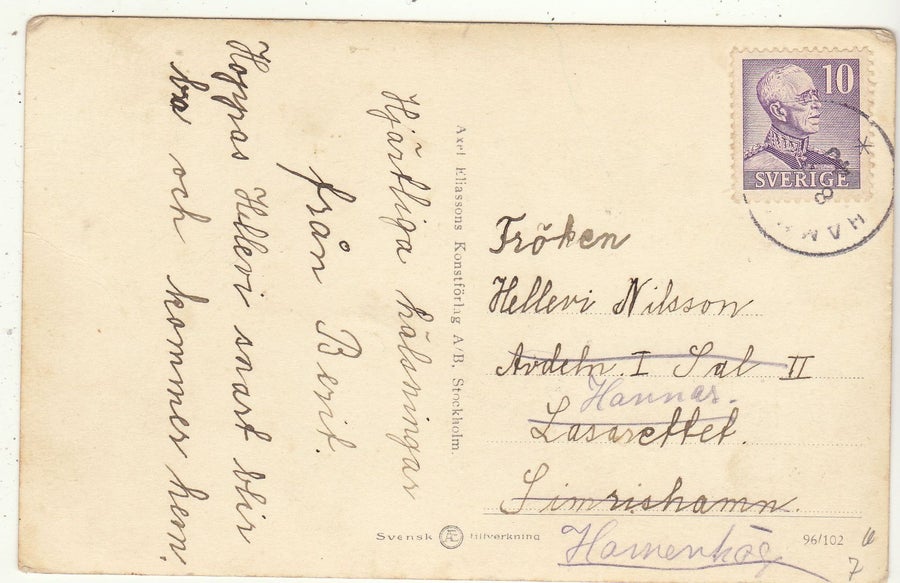 Hjärtliga hälsningar
från Berit.
Hoppas Hellevi snart blir
bra och kommer hem.
Axel Eliassons Konstförlag A/B, Stockholm.
10
SVERIGE
HAM
8
Fröken
Hellevi Nilsson
Avdeln. I Sal II
Hannas.
Lasarettet.
Simrishamn.
Hamenhög
Svensk Æ tillverkning
96/102
7